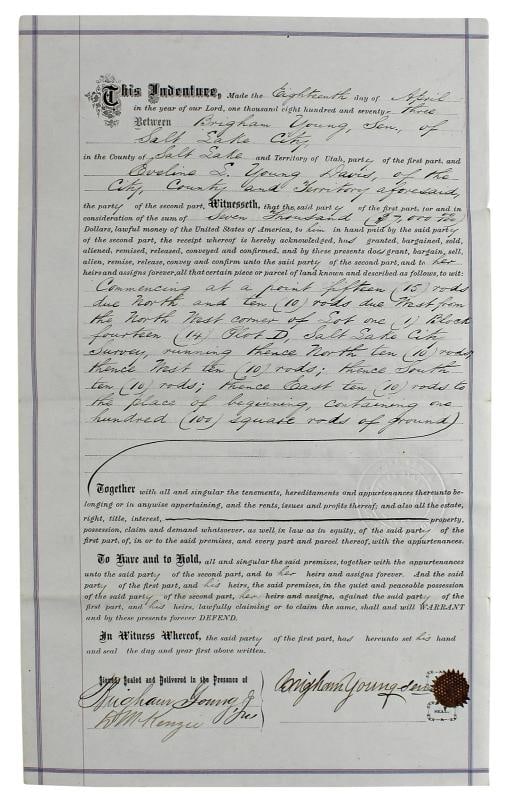 This Indenture, Made the Eighteenth day of April
in the year of our Lord, one thousand eight hundred and seventy-three
Between Brigham Young, Sen, of
Salt Lake City,
in the County of Salt Lake and Territory of Utah, party of the first part, and
Eveline L. Young Davis, of the
City, County and Territory aforesaid,
the party of the second part, Witnesseth, that the said party of the first part, for and in
consideration of the sum of Seven Thousand ($7,000 00/100)
Dollars, lawful money of the United States of America, to him in hand paid by the said party
of the second part, the receipt whereof is hereby acknowledged, has granted, bargained, sold,
aliened, remised, released, conveyed and confirmed, and by these presents does grant, bargain, sell,
alien, remise, release, convey and confirm unto the said party of the second part, and to her
heirs and assigns forever, all that certain piece or parcel of land known and described as follows, to wit:
Commencing at a point fifteen (15) rods
due North and ten (10) rods due West from
the North West corner of Lot one (1) Block
fourteen (14) Plot D, Salt Lake City
Survey, running thence North ten (10) rods;
thence West ten (10) rods; thence South
ten (10) rods; thence East ten (10) rods to
the place of beginning, containing one
hundred (100) square rods of ground)
Together with all and singular the tenements, hereditaments and appurtenances thereunto be-
longing or in anywise appertaining, and the rents, issues and profits thereof; and also all the estate,
right, title, interest, property,
possession, claim and demand whatsoever, as well in law as in equity, of the said party of the
first part, of, in or to the said premises, and every part and parcel thereof, with the appurtenances.
To Have and to Hold, all and singular the said premises, together with the appurtenances
unto the said party of the second part, and to her heirs and assigns forever. And the said
party of the first part, and his heirs, the said premises, in the quiet and peaceable possession
of the said party of the second part, her heirs and assigns, against the said party of the
first part, and his heirs, lawfully claiming or to claim the same, shall and will WARRANT
and by these presents forever DEFEND.
In Witness Whereof, the said party of the first part, has hereunto set his hand
and seal the day and year first above written.
Signed, Sealed and Delivered in the Presence of
Brigham Young Jr
D McKenzie
Brigham Young Senr
SEAL.